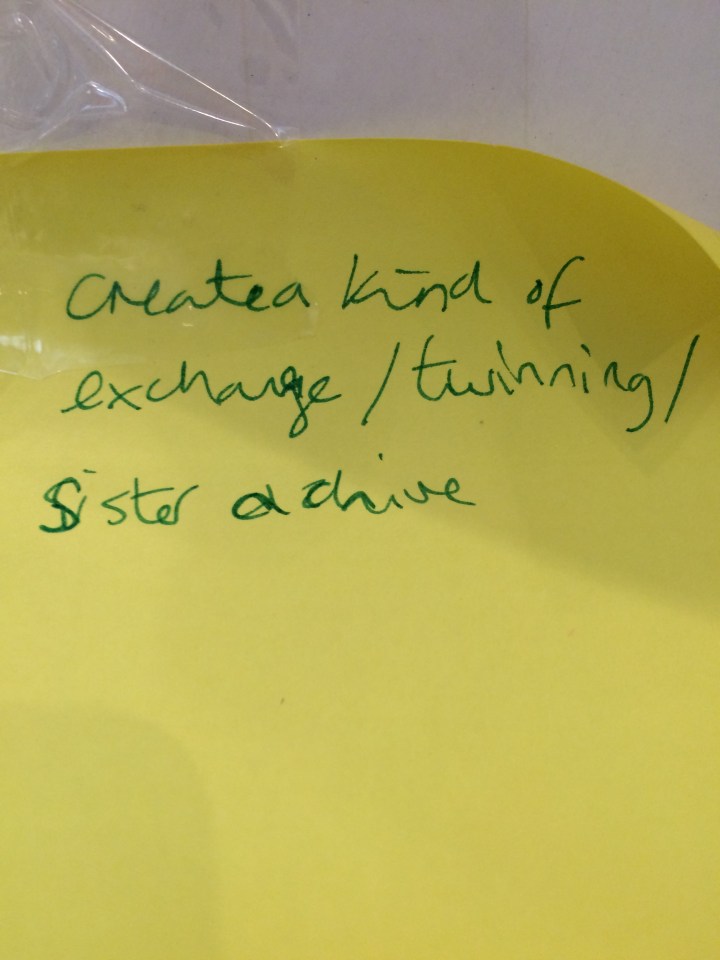 Create a kind of
exchange / twinning /
Sister archive